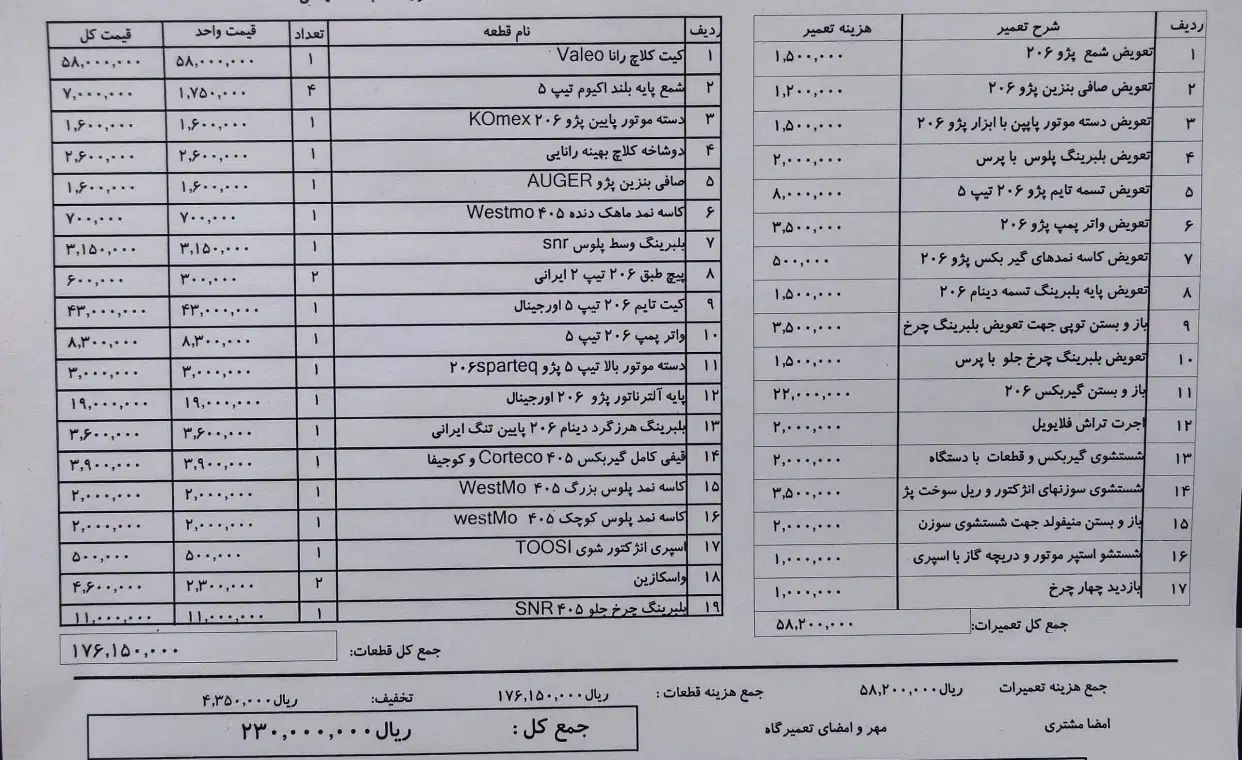 ردیف شرح تعمیر هزینه تعمیر
۱ تعویض شمع پژو ۲۰۶ ۱,۵۰۰,۰۰۰
۲ تعویض صافی بنزین پژو ۲۰۶ ۱,۲۰۰,۰۰۰
۳ تعویض دسته موتور پایین با ابزار پژو ۲۰۶ ۱,۵۰۰,۰۰۰
۴ تعویض بلبرینگ پلوس با پرس ۲,۰۰۰,۰۰۰
۵ تعویض تسمه تایم پژو ۲۰۶ تیپ ۵ ۸,۰۰۰,۰۰۰
۶ تعویض واتر پمپ پژو ۲۰۶ ۳,۵۰۰,۰۰۰
۷ تعویض کاسه نمدهای گیر بکس پژو ۲۰۶ ۵۰۰,۰۰۰
۸ تعویض پایه بلبرینگ تسمه دینام ۲۰۶ ۱,۵۰۰,۰۰۰
۹ باز و بستن توپی جهت تعویض بلبرینگ چرخ ۳,۵۰۰,۰۰۰
۱۰ تعویض بلبرینگ چرخ جلو با پرس ۱,۵۰۰,۰۰۰
۱۱ باز و بستن گیربکس ۲۰۶ ۲۲,۰۰۰,۰۰۰
۱۲ اجرت تراش فلایویل ۲,۰۰۰,۰۰۰
۱۳ شستشوی گیربکس و قطعات با دستگاه ۲,۰۰۰,۰۰۰
۱۴ شستشوی سوزنهای انژکتور و ریل سوخت پژ ۳,۵۰۰,۰۰۰
۱۵ باز و بستن منیفولد جهت شستشوی سوزن ۲,۰۰۰,۰۰۰
۱۶ شستشو استپر موتور و دریچه گاز با اسپری ۱,۰۰۰,۰۰۰
۱۷ بازدید چهار چرخ ۱,۰۰۰,۰۰۰
جمع کل تعمیرات: ۵۸,۲۰۰,۰۰۰
ردیف نام قطعه تعداد قیمت واحد قیمت کل
۱ کیت کلاچ رانا Valeo ۱ ۵۸,۰۰۰,۰۰۰ ۵۸,۰۰۰,۰۰۰
۲ شمع پایه بلند اکیوم تیپ ۵ ۴ ۱,۷۵۰,۰۰۰ ۷,۰۰۰,۰۰۰
۳ دسته موتور پایین پژو ۲۰۶ KOmex ۱ ۱,۶۰۰,۰۰۰ ۱,۶۰۰,۰۰۰
۴ دوشاخه کلاچ بهینه رانایی ۱ ۲,۶۰۰,۰۰۰ ۲,۶۰۰,۰۰۰
۵ صافی بنزین پژو AUGER ۱ ۱,۶۰۰,۰۰۰ ۱,۶۰۰,۰۰۰
۶ کاسه نمد ماهک دنده ۴۰۵ Westmo ۱ ۷۰۰,۰۰۰ ۷۰۰,۰۰۰
۷ بلبرینگ وسط پلوس snr ۱ ۳,۱۵۰,۰۰۰ ۳,۱۵۰,۰۰۰
۸ پیچ طبق ۲۰۶ تیپ ۲ ایرانی ۲ ۳۰۰,۰۰۰ ۶۰۰,۰۰۰
۹ کیت تایم ۲۰۶ تیپ ۵ اورجینال ۱ ۴۳,۰۰۰,۰۰۰ ۴۳,۰۰۰,۰۰۰
۱۰ واتر پمپ ۲۰۶ تیپ ۵ ۱ ۸,۳۰۰,۰۰۰ ۸,۳۰۰,۰۰۰
۱۱ دسته موتور بالا تیپ ۵ پژو ۲۰۶sparteq ۱ ۳,۰۰۰,۰۰۰ ۳,۰۰۰,۰۰۰
۱۲ پایه آلترناتور پژو ۲۰۶ اورجینال ۱ ۱۹,۰۰۰,۰۰۰ ۱۹,۰۰۰,۰۰۰
۱۳ بلبرینگ هرزگرد دینام ۲۰۶ پایین تنگ ایرانی ۱ ۳,۶۰۰,۰۰۰ ۳,۶۰۰,۰۰۰
۱۴ قیفی کامل گیربکس ۴۰۵ Corteco و کوجیفا ۱ ۳,۹۰۰,۰۰۰ ۳,۹۰۰,۰۰۰
۱۵ کاسه نمد پلوس بزرگ ۴۰۵ WestMo ۱ ۲,۰۰۰,۰۰۰ ۲,۰۰۰,۰۰۰
۱۶ کاسه نمد پلوس کوچک ۴۰۵ westMo ۱ ۲,۰۰۰,۰۰۰ ۲,۰۰۰,۰۰۰
۱۷ اسپری انژکتور شوی TOOSI ۱ ۵۰۰,۰۰۰ ۵۰۰,۰۰۰
۱۸ واسکازین ۲ ۲,۳۰۰,۰۰۰ ۴,۶۰۰,۰۰۰
۱۹ بلبرینگ چرخ جلو ۴۰۵ SNR ۱ ۱۱,۰۰۰,۰۰۰ ۱۱,۰۰۰,۰۰۰
جمع کل قطعات: ۱۷۶,۱۵۰,۰۰۰
جمع هزینه تعمیرات ۵۸,۲۰۰,۰۰۰ ریال جمع هزینه قطعات: ۱۷۶,۱۵۰,۰۰۰ ریال تخفیف: ۴,۳۵۰,۰۰۰ ریال
امضا مشتری مهر و امضای تعمیرگاه جمع کل: ۲۳۰,۰۰۰,۰۰۰ ریال